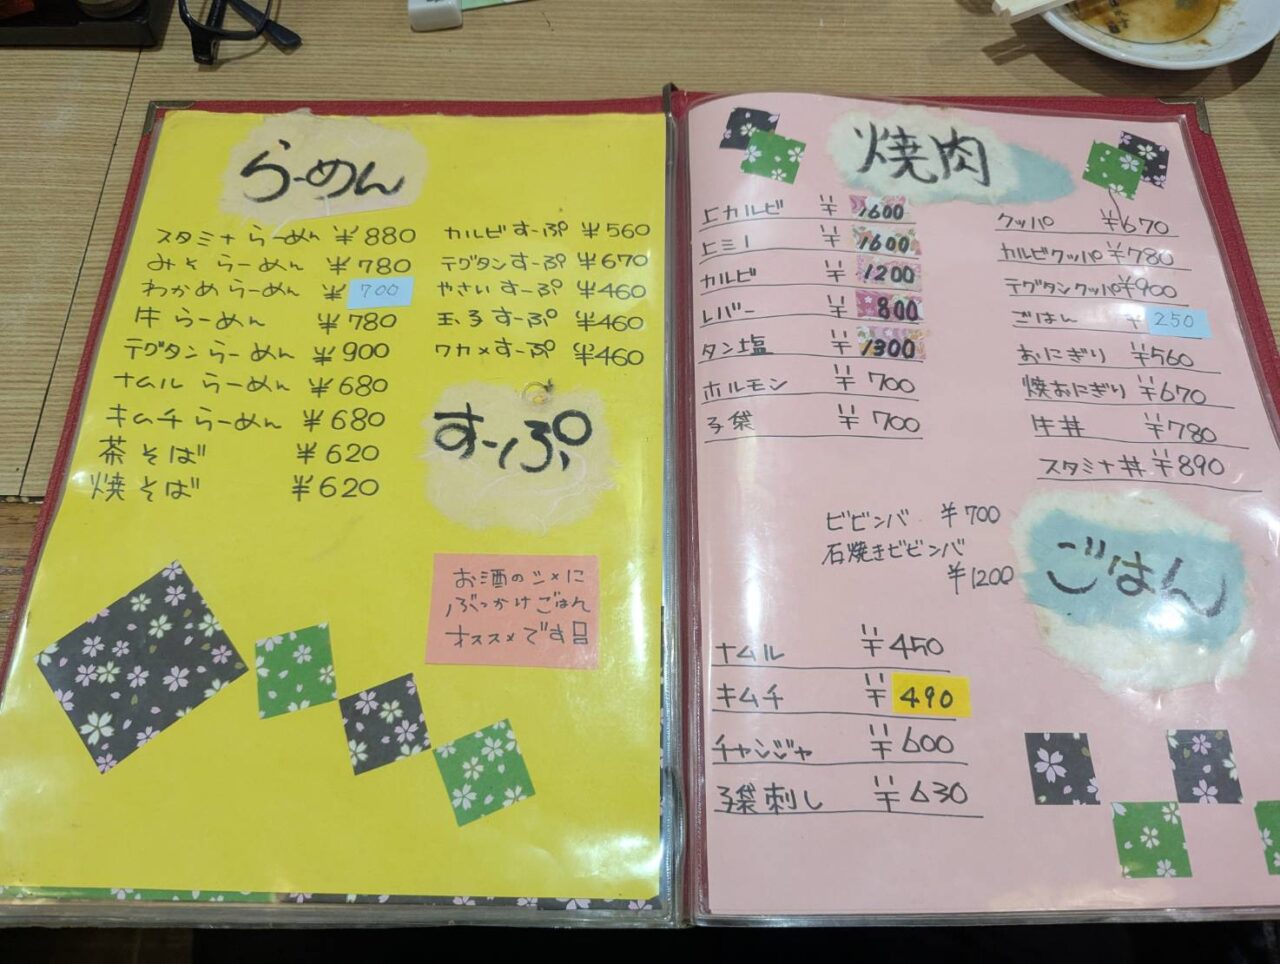 らーめん
スタミナらーめん ¥880
みそらーめん ¥780
わかめらーめん ¥700
牛らーめん ¥780
テグタンらーめん ¥900
ナムルらーめん ¥680
キムチらーめん ¥680
茶そば ¥620
焼そば ¥620
カルビすーぷ ¥560
テグタンすーぷ ¥670
やさいすーぷ ¥460
玉子すーぷ ¥460
ワカメすーぷ ¥460
すーぷ
お酒のシメに
ぶっかけごはん
オススメです
焼肉
上カルビ ¥1600
上ミノ ¥1600
カルビ ¥1200
レバー ¥800
タン塩 ¥1300
ホルモン ¥700
子袋 ¥700
クッパ ¥670
カルビクッパ ¥780
テグタンクッパ ¥900
ごはん ¥250
おにぎり ¥560
焼おにぎり ¥670
牛丼 ¥780
スタミナ丼 ¥890
ビビンバ ¥700
石焼きビビンバ
¥1200
ごはん
ナムル ¥450
キムチ ¥490
チャンジャ ¥600
子袋刺し ¥630